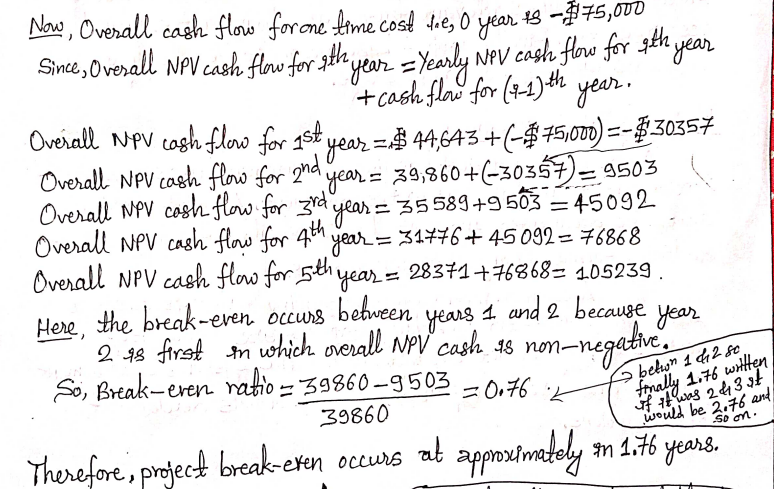 Now, Overall cash flow for one time cost i.e, 0 year is -$75,000
Since, Overall NPV cash flow for ith year = Yearly NPV cash flow for ith year
+ cash flow for (i-1)th year.
Overall NPV cash flow for 1st year = $ 44,643 + (-$75,000) = -$30357
Overall NPV cash flow for 2nd year = 39,860 + (-30357) = 9503
Overall NPV cash flow for 3rd year = 35589 + 9503 = 45092
Overall NPV cash flow for 4th year = 31776 + 45092 = 76868
Overall NPV cash flow for 5th year = 28371 + 76868 = 105239.
Here, the break-even occurs between years 1 and 2 because year
2 is first in which overall NPV cash is non-negative.
So, Break-even ratio = 39860 - 9503 = 0.76
39860
betwn 1 & 2 so
finally 1.76 written
if it was 2 & 3 it
would be 2.76 and
so on.
Therefore, project break-even occurs at approximately in 1.76 years.